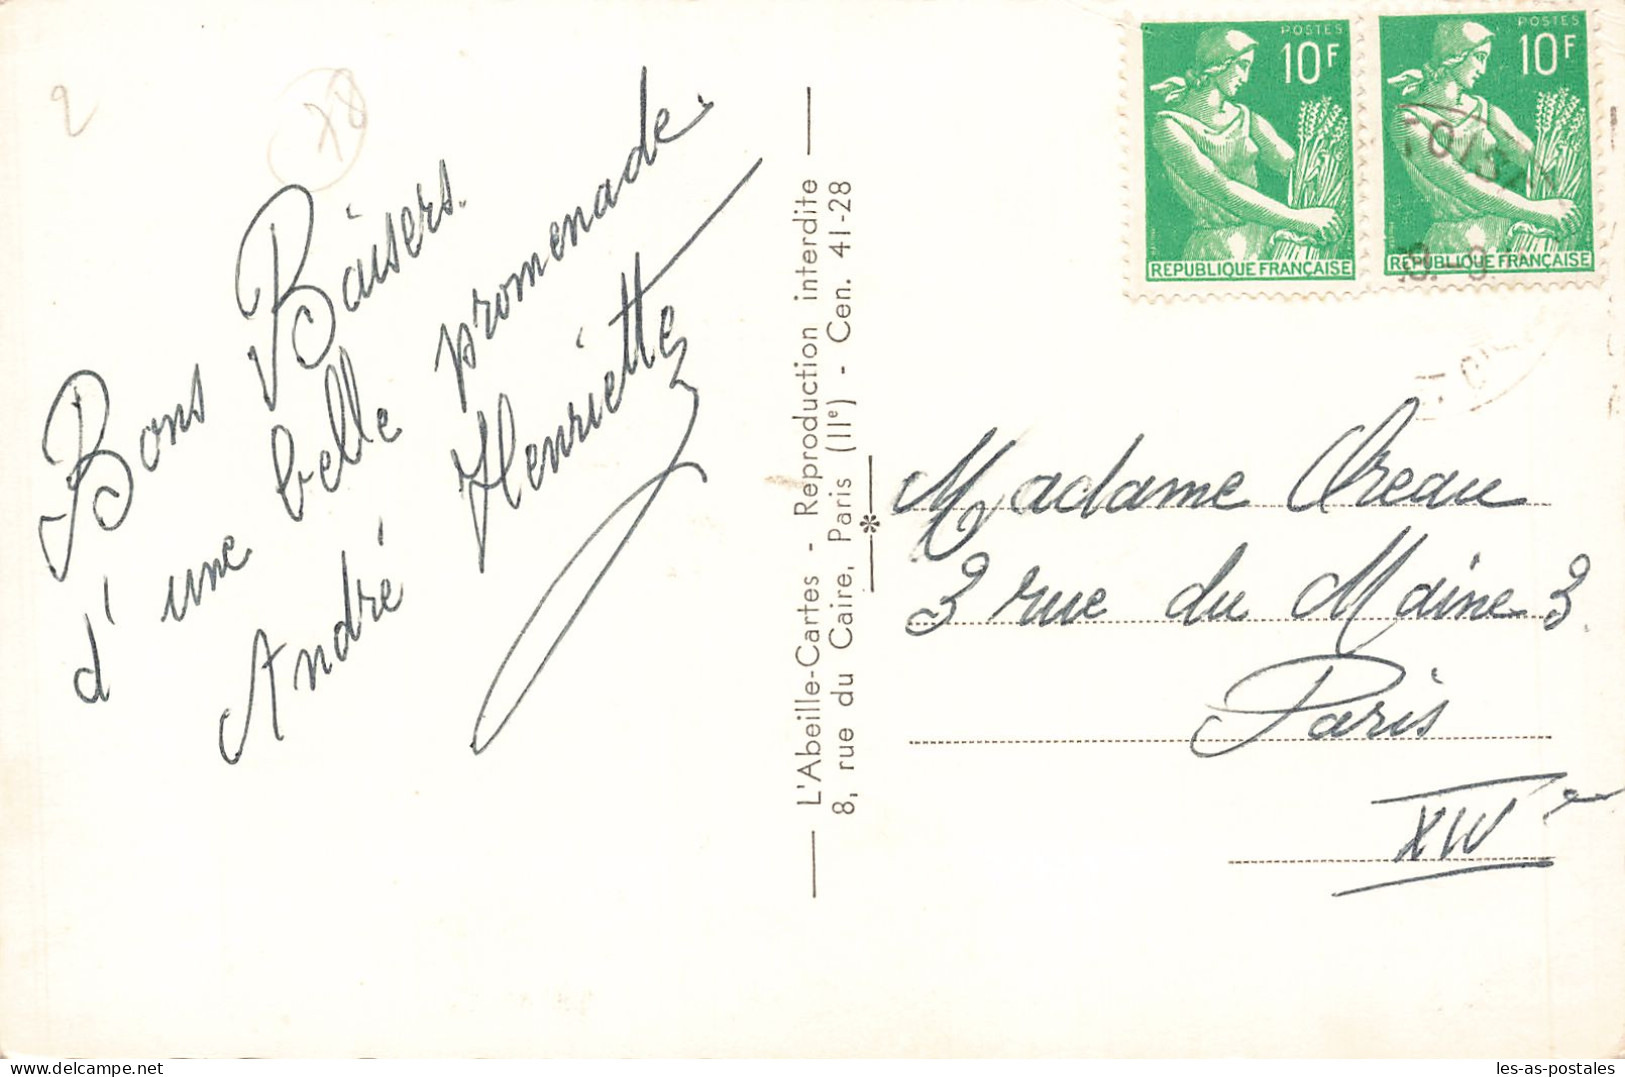 2
78
Bons Baisers.
d'une belle promenade.
André Henriette
L'Abeille-Cartes - Reproduction interdite
8, rue du Caire, Paris (IIe) - Cen. 41-28
POSTES
10F
REPUBLIQUE FRANÇAISE
POSTES
10F
REPUBLIQUE FRANÇAISE
Madame Oreau
3 rue du Maine 3.
Paris
les-as-postales